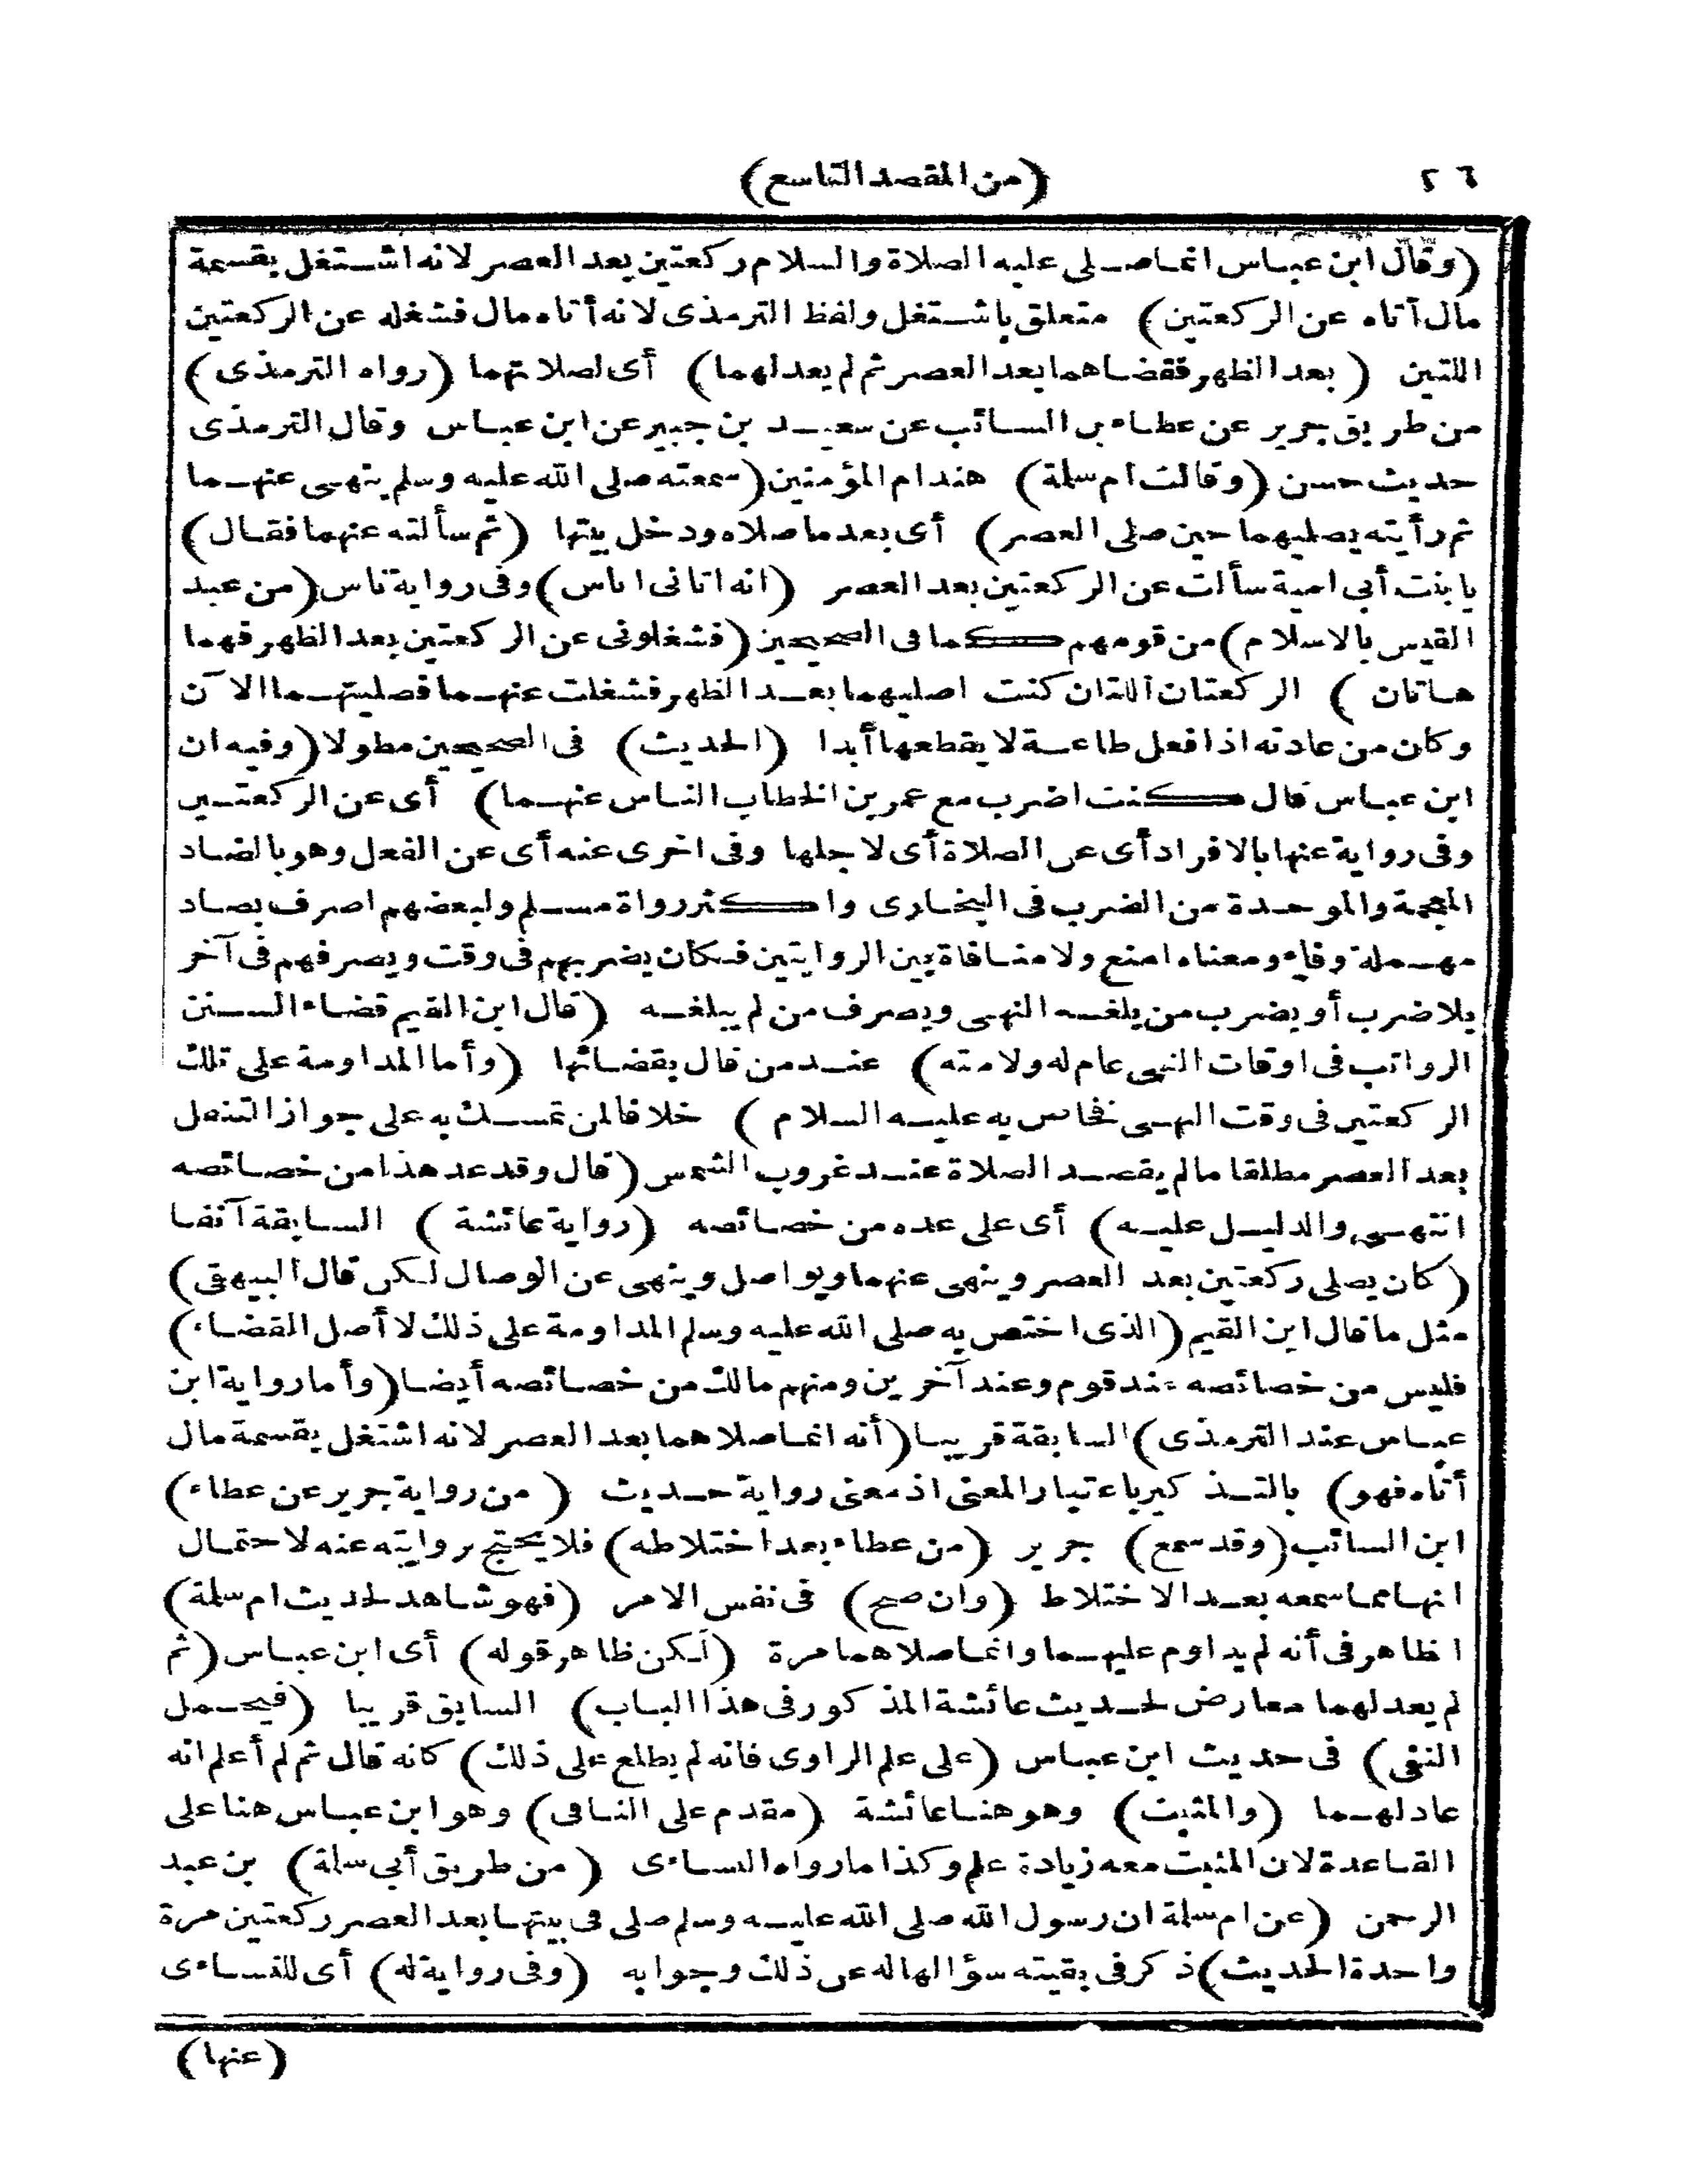 ٢٦
(من المقصد التاسع)
(وقال ابن عباس انما صلى عليه الصلاة والسلام ركعتين بعد العصر لانه اشتغل بقسمة
مال آتاه عن الركعتين) متعلق باشتغل ولفظ الترمذى لانه أتاه مال فشغله عن الركعتين
اللتين (بعد الظهر فقضاهما بعد العصر ثم لم يعد لهما) أى لصلاتهما (رواه الترمذى)
من طريق جرير عن عطاء بن السائب عن سعيد بن جبير عن ابن عباس وقال الترمذى
حديث حسن (وقالت ام سلمة) هند ام المؤمنين (سمعته صلى الله عليه وسلم ينهى عنهما
ثم رأيته يصليهما حين صلى العصر) أى بعد ما صلاه ودخل بيتها (ثم سألته عنهما فقال)
يا بنت أبى امية سألت عن الركعتين بعد العصر (انه اتانى اناس) وفى رواية ناس (من عبد
القيس بالاسلام) من قومهم كما فى الصحيحين (فشغلونى عن الركعتين بعد الظهر فهما
هاتان) الركعتان اللتان كنت اصليهما بعد الظهر فشغلت عنهما فصليتهما الآن
وكان من عادته اذا فعل طاعة لا يقطعها أبدا (الحديث) فى الصحيحين مطولا (وفيه ان
ابن عباس قال كنت اضرب مع عمر بن الخطاب الناس عنهما) أى عن الركعتين
وفى رواية عنها بالافراد أى عن الصلاة أى لاجلها وفى اخرى عنه أى عن الفعل وهو بالضاد
المعجمة والموحدة من الضرب فى البخارى واكثر رواة مسلم ولبعضهم اصرف بصاد
مهملة وفاء ومعناه امنع ولا منافاة بين الروايتين فكان يضربهم فى وقت ويصرفهم فى آخر
بلا ضرب أو يضرب من بلغه النهى ويصرف من لم يبلغه (قال ابن القيم قضاء السنن
الرواتب فى اوقات النهى عام له ولامته) عند من قال بقضائها (وأما المداومة على تلك
الركعتين فى وقت النهى فخاص به عليه السلام) خلافا لمن تمسك به على جواز التنفل
بعد العصر مطلقا ما لم يقصد الصلاة عند غروب الشمس (قال وقد عد هذا من خصائصه
انتهى والدليل عليه) أى على عده من خصائصه (رواية عائشة) السابقة آنفا
(كان يصلى ركعتين بعد العصر وينهى عنهما ويواصل وينهى عن الوصال لكن قال البيهقى)
مثل ما قال ابن القيم (الذى اختص به صلى الله عليه وسلم المداومة على ذلك لا أصل القضاء)
فليس من خصائصه عند قوم وعند آخرين ومنهم مالك من خصائصه أيضا (وأما رواية ابن
عباس عند الترمذى) السابقة قريبا (أنه انما صلاهما بعد العصر لانه اشتغل بقسمة مال
أتاه فهو) بالتذكير باعتبار المعنى اذ معنى رواية حديث (من رواية جرير عن عطاء)
ابن السائب (وقد سمع) جرير (من عطاء بعد اختلاطه) فلا يحتج بروايته عنه لاحتمال
انها مما سمعه بعد الاختلاط (وان صح) فى نفس الامر (فهو شاهد لحديث ام سلمة)
ا ظاهر فى أنه لم يداوم عليهما وانما صلاهما مرة (لكن ظاهر قوله) أى ابن عباس (ثم
لم يعد لهما معارض لحديث عائشة المذكور فى هذا الباب) السابق قريبا (فيحمل
النفى) فى حديث ابن عباس (على علم الراوى فانه لم يطلع على ذلك) كانه قال ثم لم أعلم انه
عاد لهما (والمثبت) وهو هنا عائشة (مقدم على النافى) وهو ابن عباس هنا على
القاعدة لان المثبت معه زيادة علم وكذا ما رواه النساءى (من طريق أبى سلمة) بن عبد
الرحمن (عن ام سلمة ان رسول الله صلى الله عليه وسلم صلى فى بيتها بعد العصر ركعتين مرة
واحدة الحديث) ذكر فى بقيته سؤالها له عن ذلك وجوابه (وفى رواية له) أى للنساءى
(عنها)